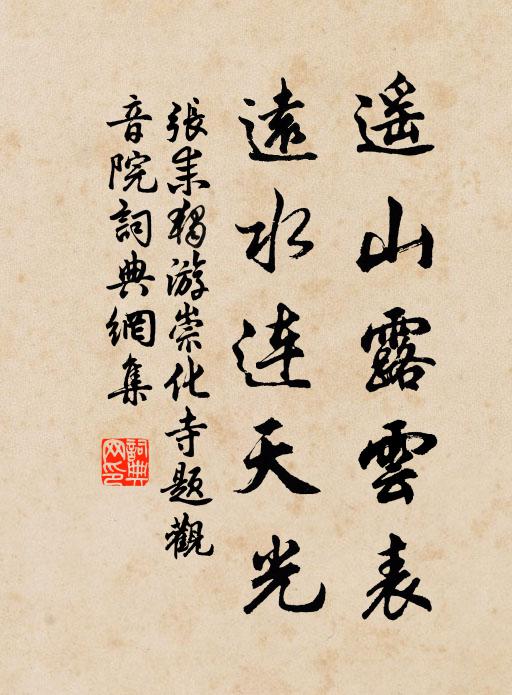 遥山露雲表
遠水連天光
張耒獨游崇化寺題觀
音院詞典網集
詞典网印